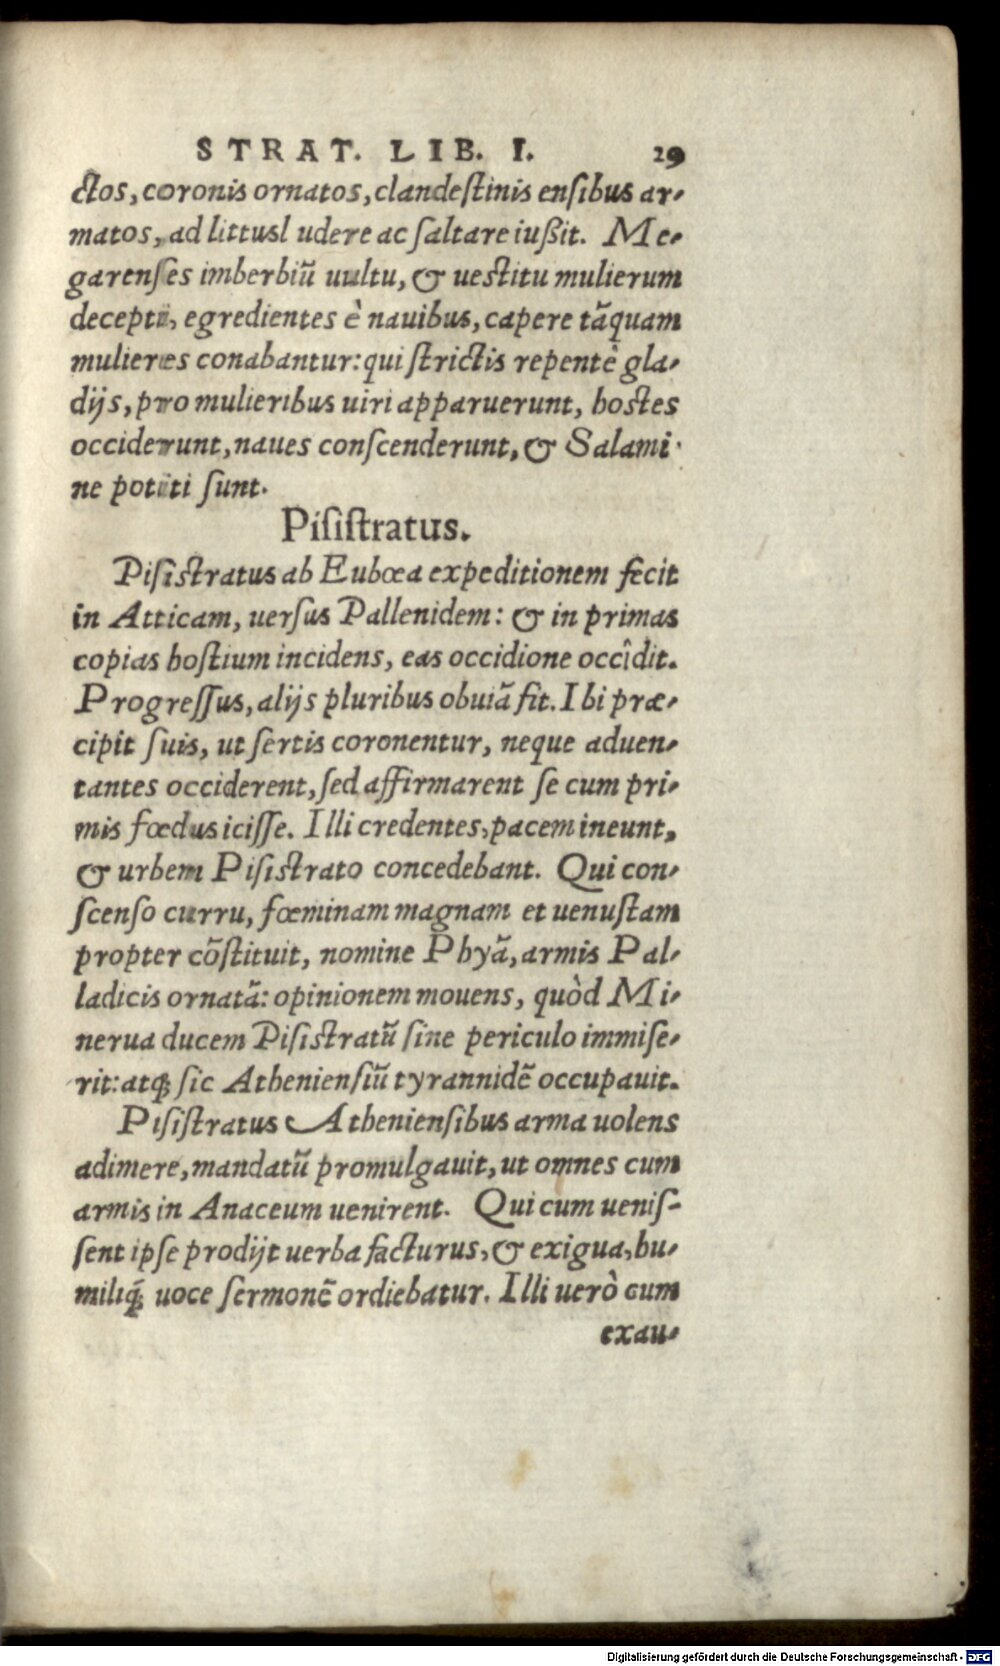 STRAT. LIB. I. 29
ctos, coronis ornatos, clandestinis ensibus ar-
matos, ad littusl udere ac saltare iußit. Me-
garenses imberbiũ uultu, & uestitu mulierum
decepti, egredientes è nauibus, capere tãquam
mulieres conabantur: qui strictis repentè gla-
dijs, pro mulieribus uiri apparuerunt, hostes
occiderunt, naues conscenderunt, & Salami-
ne potiti sunt.
Pisistratus.
Pisistratus ab Eubœa expeditionem fecit
in Atticam, uersus Pallenidem: & in primas
copias hostium incidens, eas occidione occîdit.
Progressus, alijs pluribus obuiã fit. Ibi præ-
cipit suis, ut sertis coronentur, neque aduen-
tantes occiderent, sed affirmarent se cum pri-
mis fœdus icisse. Illi credentes, pacem ineunt,
& urbem Pisistrato concedebant. Qui con-
scenso curru, fœminam magnam et uenustam
propter cõstituit, nomine Phyã, armis Pal-
ladicis ornatã: opinionem mouens, quòd Mi-
nerua ducem Pisistratũ sine periculo immise-
rit: atq; sic Atheniensiũ tyrannidẽ occupauit.
Pisistratus Atheniensibus arma uolens
adimere, mandatũ promulgauit, ut omnes cum
armis in Anaceum uenirent. Qui cum uenis-
sent ipse prodijt uerba facturus, & exigua, hu-
miliq́; uoce sermonẽ ordiebatur. Illi uerò cum
exau-
Digitalisierung gefördert durch die Deutsche Forschungsgemeinschaft - DFG